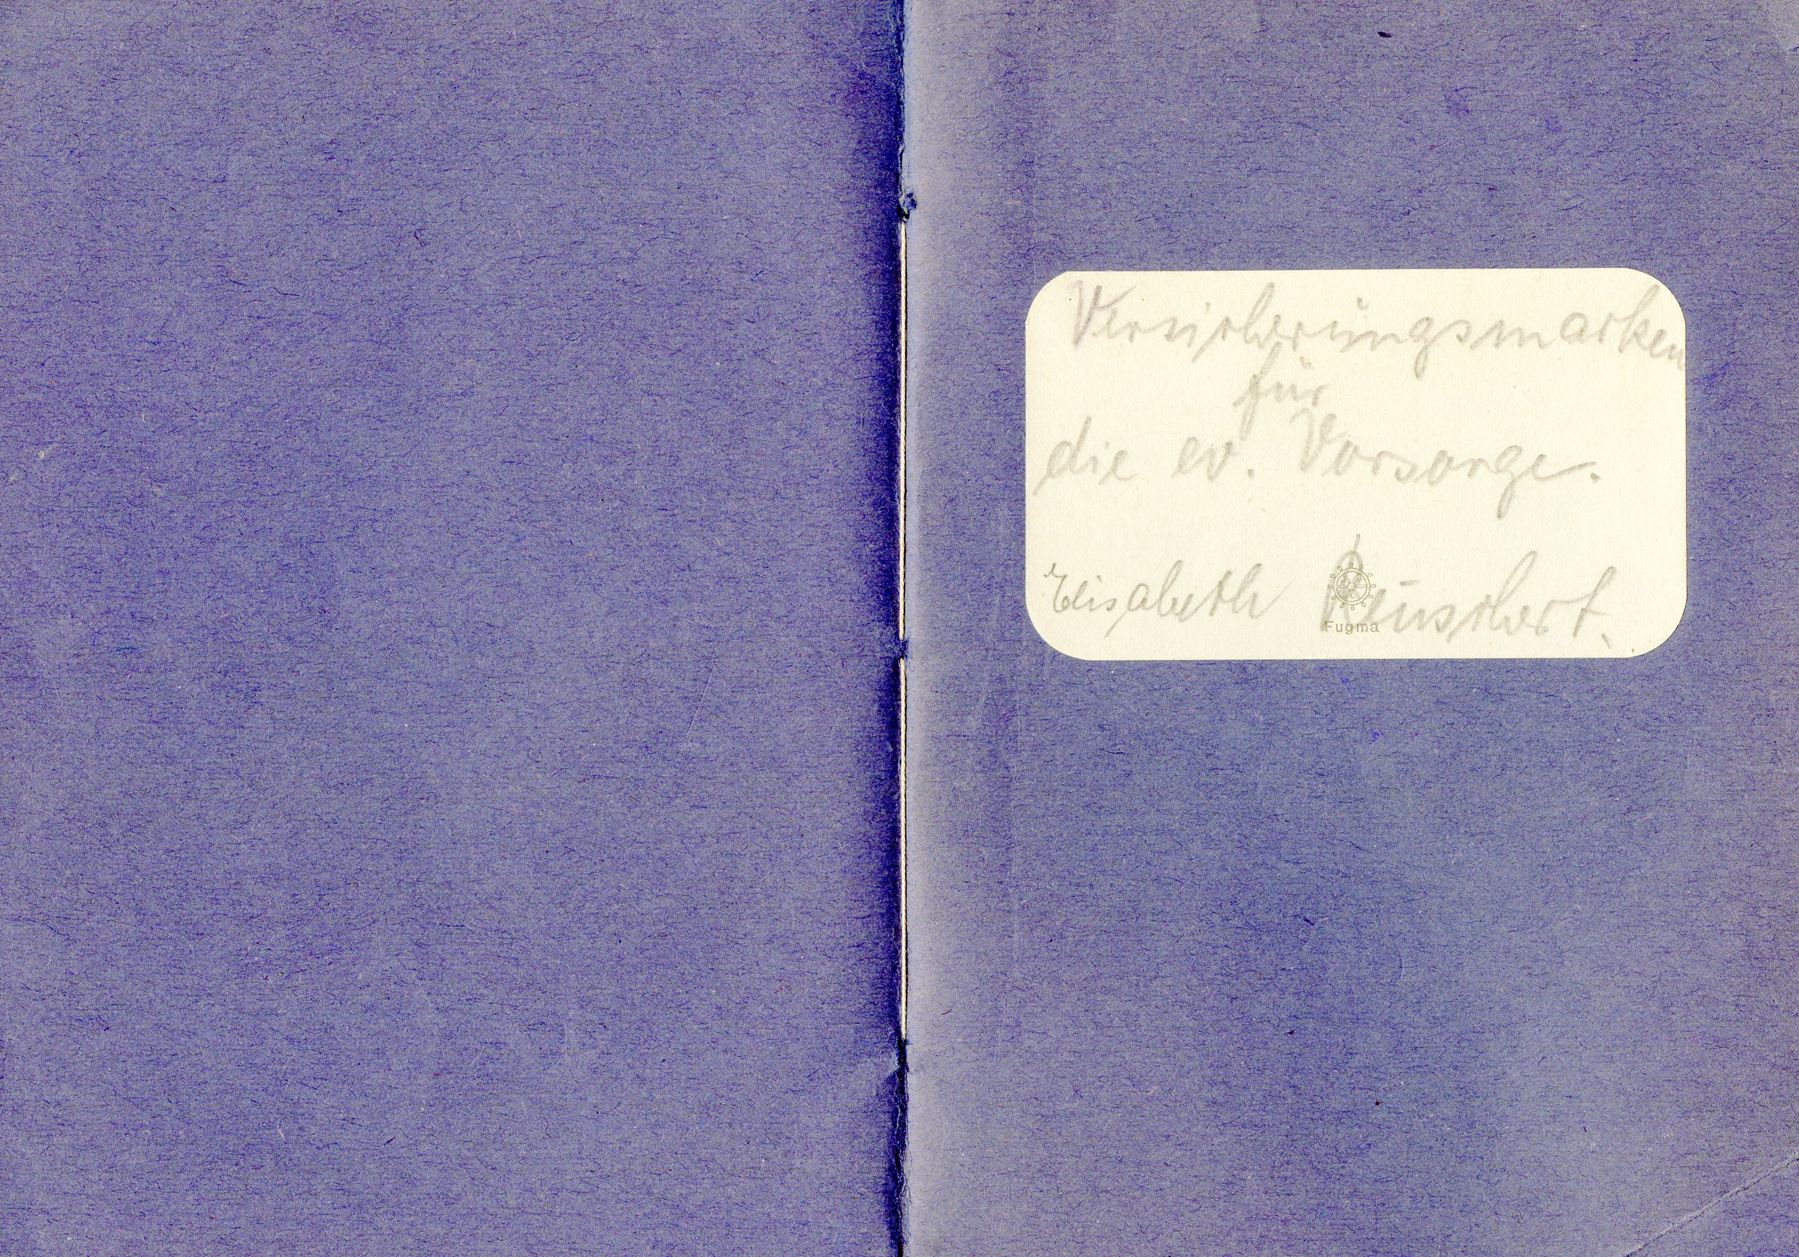 Versicherungsmarken
für
die ev. Vorsorge.
Elisabeth
Fugma